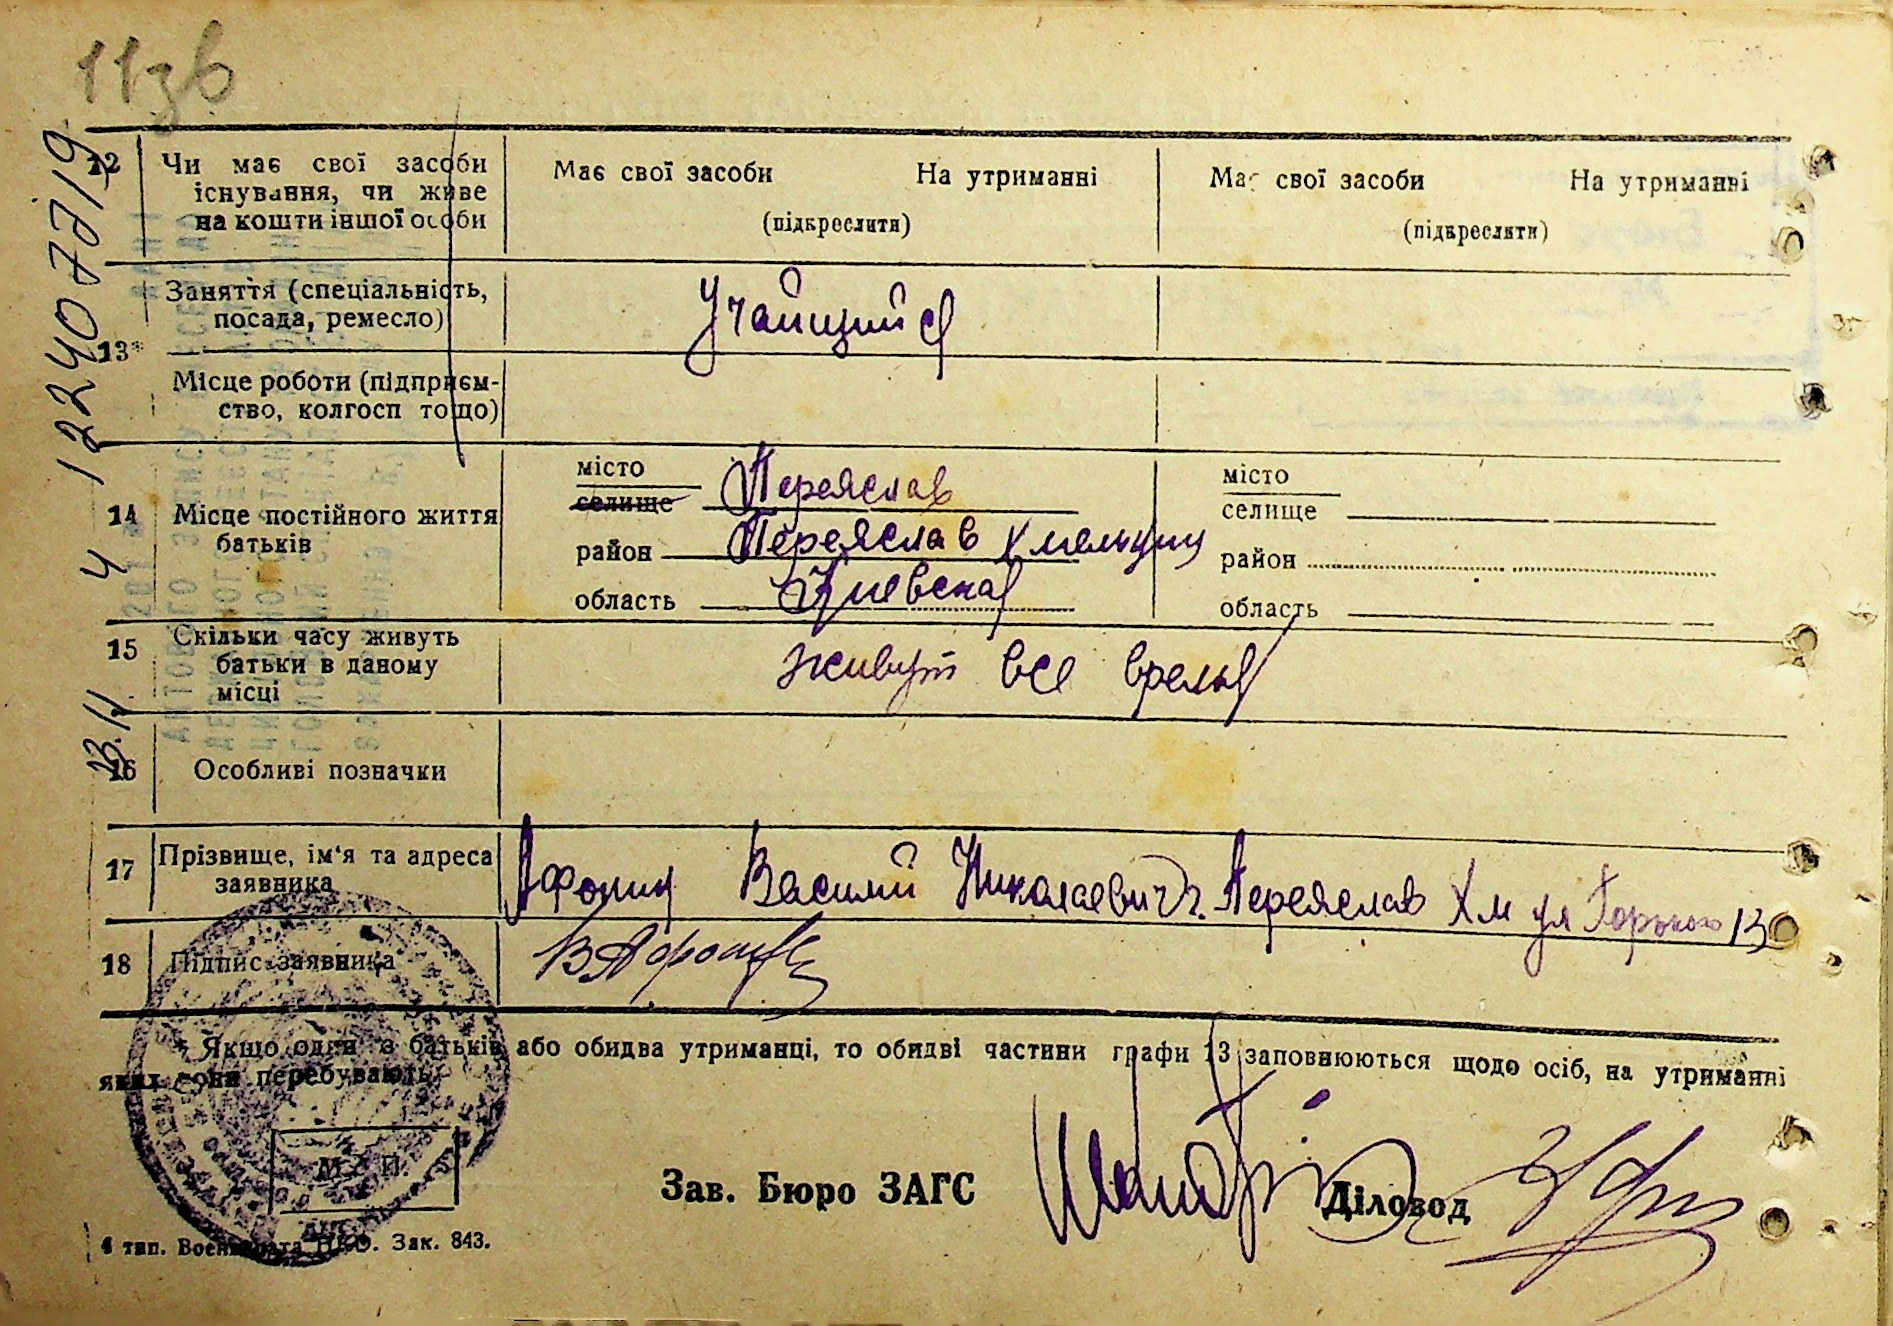 11зв
12240 77 19
12 Чи має свої засоби існування, чи живе на кошти іншої особи
Має свої засоби На утриманні
(підкреслити)
Має свої засоби На утриманні
(підкреслити)
13* Заняття (спеціальність, посада, ремесло)
Учащийся
Місце роботи (підприєм-
ство, колгосп тощо)
14 Місце постійного життя батьків
місто Переяслав
селище
район Переяслав Хмельниц
область Киевская
місто
селище
район
область
15 Скільки часу живуть батьки в даному місці
живут все время
16 Особливі позначки
17 Прізвище, ім'я та адреса заявника
Афонин Василий Николаевич г. Переяслав Хм ул Горького 13
18 Підпис заявника
ВАфонин
* Якщо один з батьків або обидва утриманці, то обидві частини графи 13 заповнюються щодо осіб, на утриманні
яких вони перебувають
М. П.
Зав. Бюро ЗАГС
Діловод
4 тип. Воениздата НКО. Зак. 843.